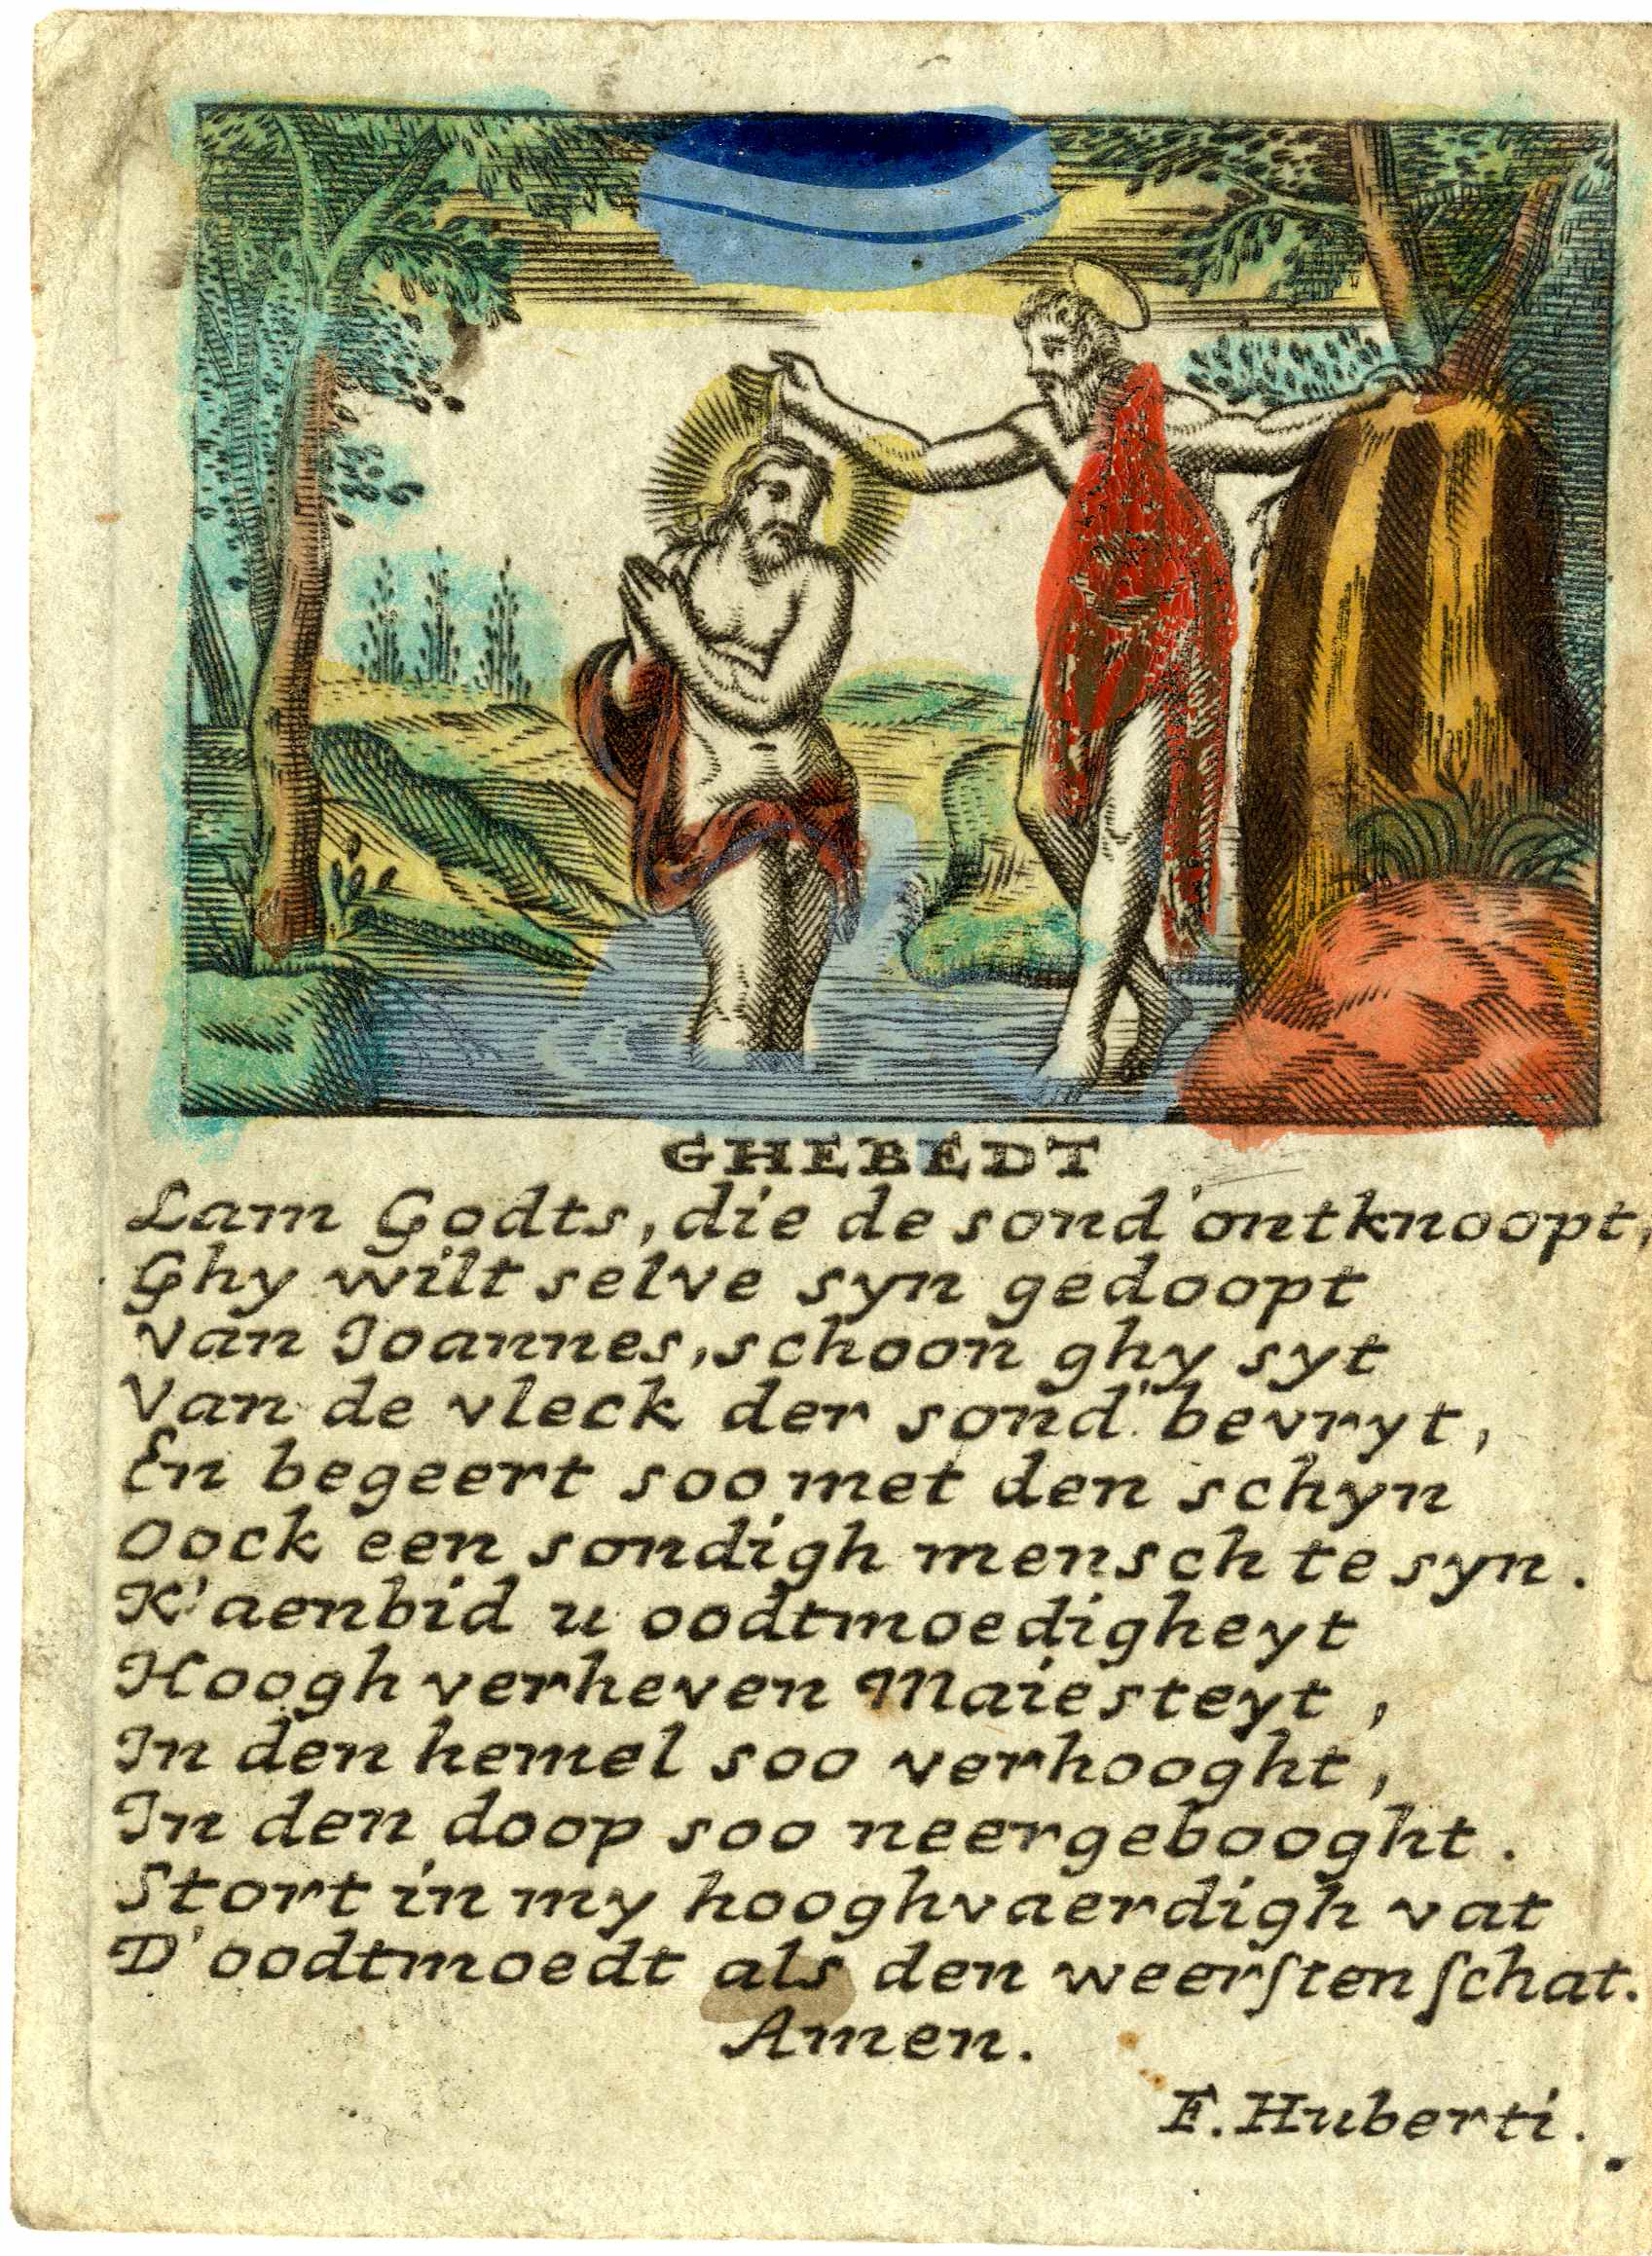 GHEBEDT
Lam Godts, die de sond' ontknoopt,
Ghy wilt selve syn gedoopt
Van Joannes, schoon ghy syt
Van de vleck der sond' bevryt,
En begeert soo met den schyn
Oock een sondigh mensch te syn.
K'aenbid u oodtmoedigheyt
Hoogh verheven Maiesteyt,
In den hemel soo verhooght,
In den doop soo neergebooght.
Stort in my hooghvaerdigh vat
D'oodtmoedt als den weerſten ſchat.
Amen.
F. Huberti.